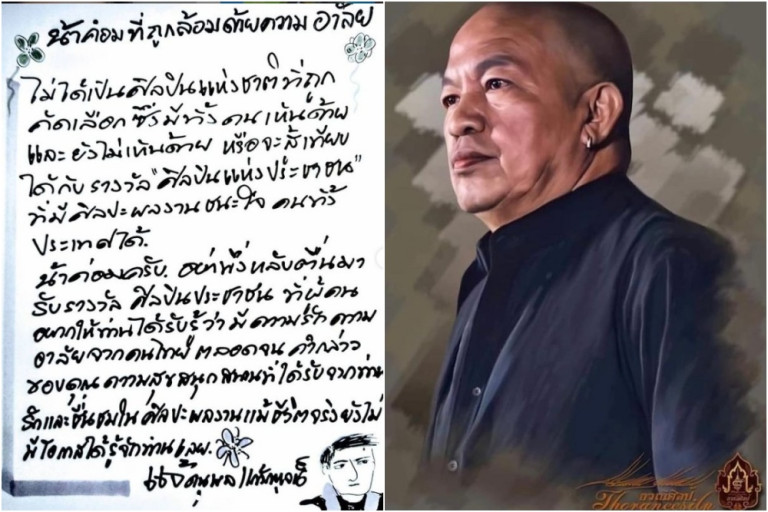 น้าค่อมที่ถูกล้อมด้วยความอาลัย
ไม่ได้เป็นศิลปินแห่งชาติที่ถูก
คัดเลือก ซึ่งมีทั้งคนเห็นด้วย
และยังไม่เห็นด้วย หรือจะสู้เทียบ
ได้กับรางวัล"ศิลปินแห่งประชาชน"
ที่มีศิลปะผลงานชนะใจ คนทั้ง
ประเทศได้.
น้าค่อมครับ. อย่าพึ่งหลับตื่นมา
รับรางวัล ศิลปินประชาชน ที่ผู้คน
อยากให้ท่านได้รับรู้ว่า มีความรักความ
อาลัยจากคนไทย ตลอดจน คำกล่าว
ขอบคุณ ความสุขสนุกสนานที่ได้รับจากท่าน
รักและชื่นชมในศิลปะผลงานแม้ชีวิตจริงยังไม่
มีโอกาสได้รู้จักท่านเลย.
Thoraneesilp